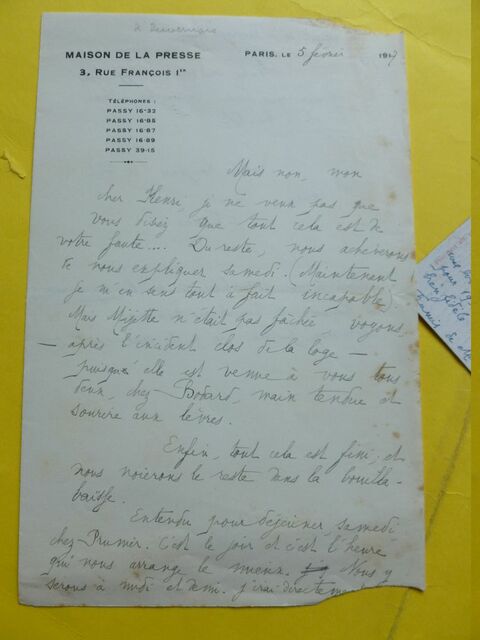 à Duvernois
MAISON DE LA PRESSE
3, RUE FRANÇOIS Iᵉʳ
PARIS, LE 5 février 1917
TÉLÉPHONES :
PASSY 16-32
PASSY 16-85
PASSY 16-87
PASSY 16-89
PASSY 39-15
Mais non, mon
cher Henri, je ne veux pas que
vous disiez que tout cela est de
votre faute.... Du reste, nous achèverons
de nous expliquer samedi. (Maintenant
je m'en sens tout à fait incapable).
Mais Mizette n'était pas fâchée, voyons,
— après l'incident clos de la loge —
puisque elle est venue à vous tous
deux, chez Bodard, main tendue et
sourire aux lèvres.
Enfin, tout cela est fini, et
nous noierons le reste dans la bouilla-
baisse.
Entendu pour déjeuner, samedi
chez Prunier. C'est le jour et c'est l'heure
qui nous arrange le mieux. Nous y
serons à midi et demi. J'irai directement
pour 19